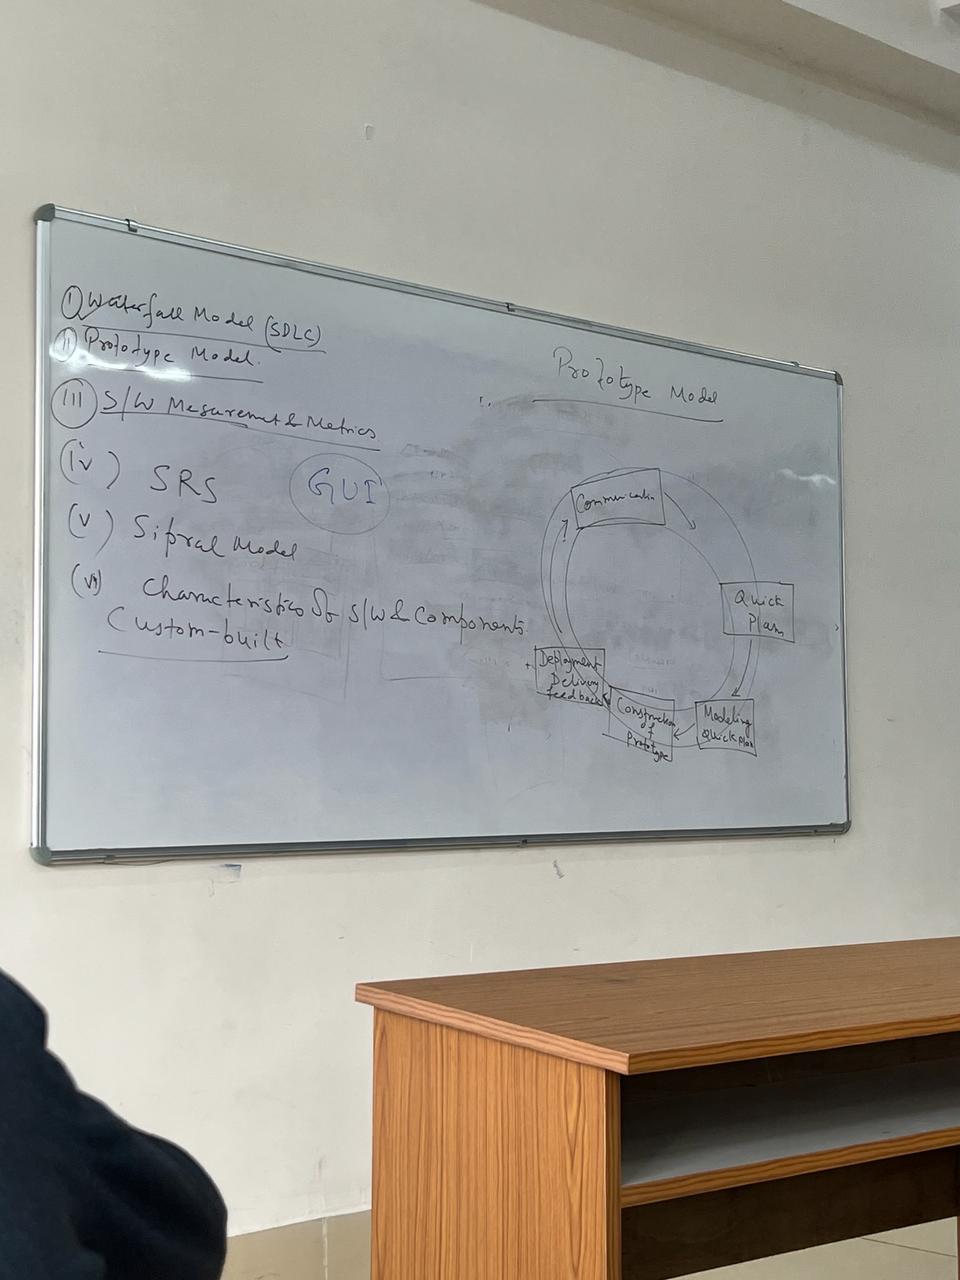 (I) Waterfall Model (SDLC)
(II) Prototype Model.
(III) S/W Mesuremet & Metrics
(iv) SRS
GUI
(v) Sipral Model
(vi) Characteristics of S/W & Components.
Custom-built
Prototype Model
Communicatin
Quick
Plan
Modeling
Quick plan
Construction
of
Prototype
Deployment
Delivery
feedback